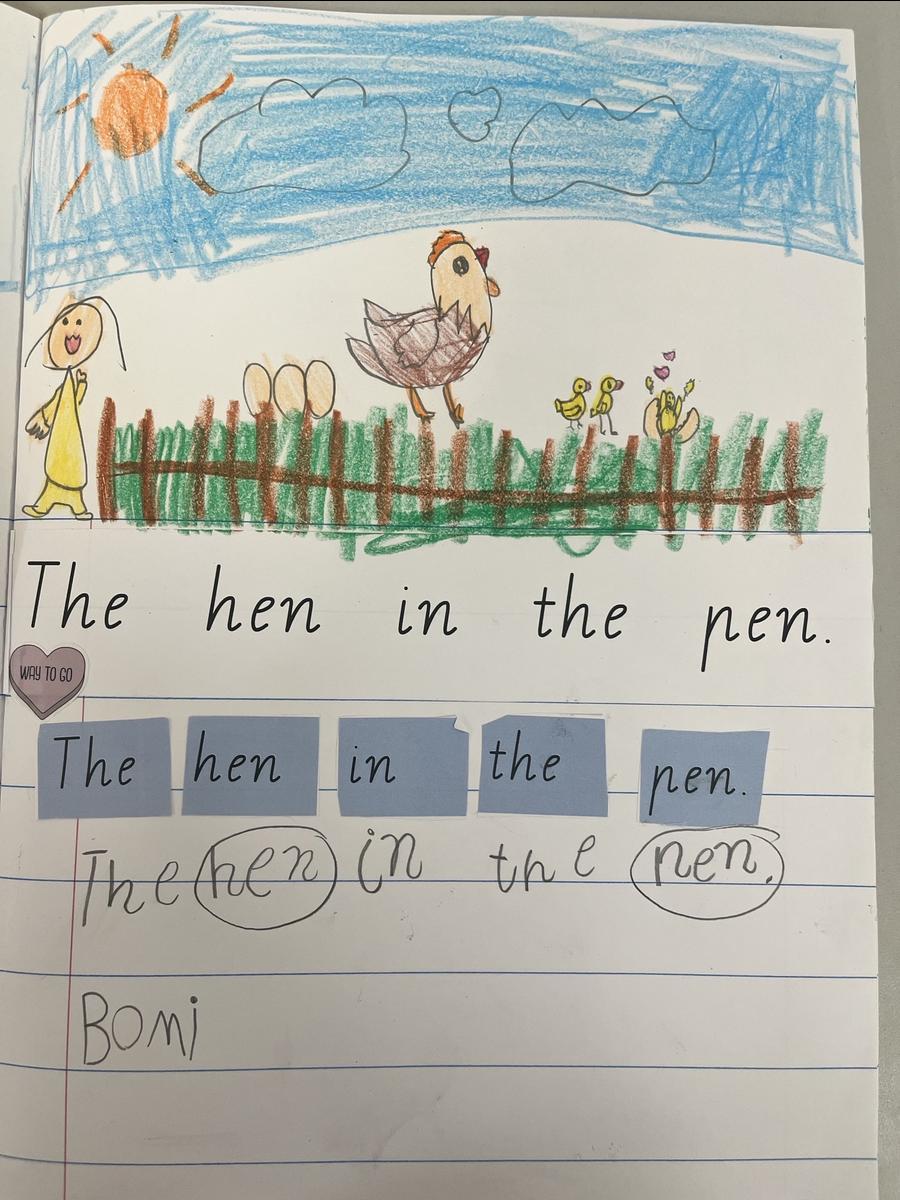 The hen in the pen.
WAY TO GO
The hen in the pen.
The hen in the nen.
Bomi